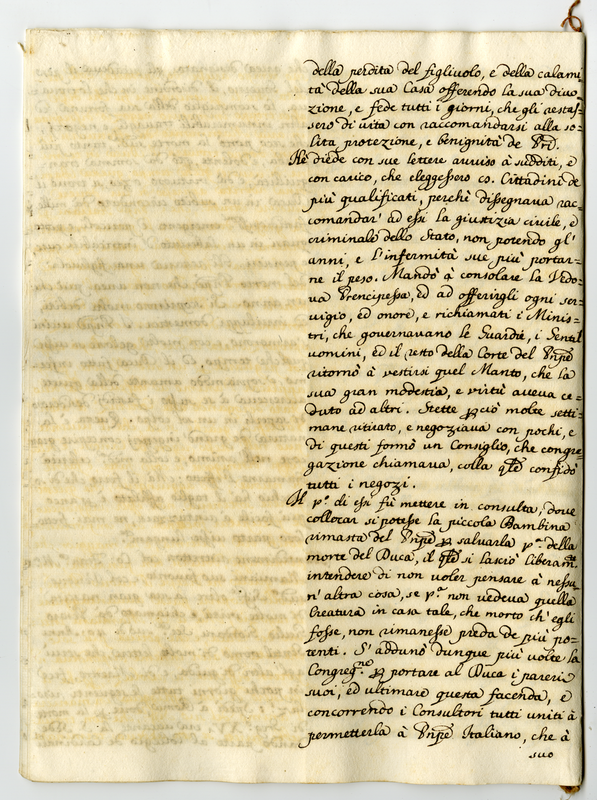 della perdita del figliuolo, e della calami-
tà della sua Casa offerendo la sua divo
zione, e fede tutti i giorni, che gli restas-
sero di vita con raccomandarsi alla so-
lita protezione, e benignità de
Re diede con sue lettere avviso à sudditi, e
con carico, che eleggessero co. Cittadini de
più qualificati, perchè dissegnava rac-
comandar' ad essi la giustizia civile, e
criminale dello Stato, non potendo gl'
anni, e l'infermità sue più portar-
ne il peso. Mandò à consolare la Vedo-
va Prencipessa, ed ad offerirgli ogni ser-
vigio, ed onore, e richiamati i Minis-
tri, che governavano le Guardie, i Gentil
uomini, ed il resto della Corte del Pñpe
ritornò à vestirsi quel Manto, che la
sua gran modestia, e virtù aveva ce-
duto ad altri. Stette ꝑciò molte setti-
mane ritirato, e negoziava con pochi, e
di questi formò un Consiglio, che congre-
gazione chiamava, colla qle confidò
tutti i negozi.
Il pº. di essi fù mettere in consulta, dove
collocar si potesse la piccola Bambina
rimasta del Pñpe ꝑ salvarla pª. della
morte del Duca, il qle si lasciò liberamte.
intendere di non voler pensare à nessu
n' altra cosa, se pª. non vedeva quella
Creatura in casa tale, che morto ch' egli
fosse, non rimanesse preda de più po-
tenti. S' adunò dunque più volte la
Congregne. ꝑ portare al Duca i pareri
suoi, ed ultimare questa facenda, e
concorrendo i Consultori tutti uniti à
permetterla à Pñpe Italiano, che à
suo